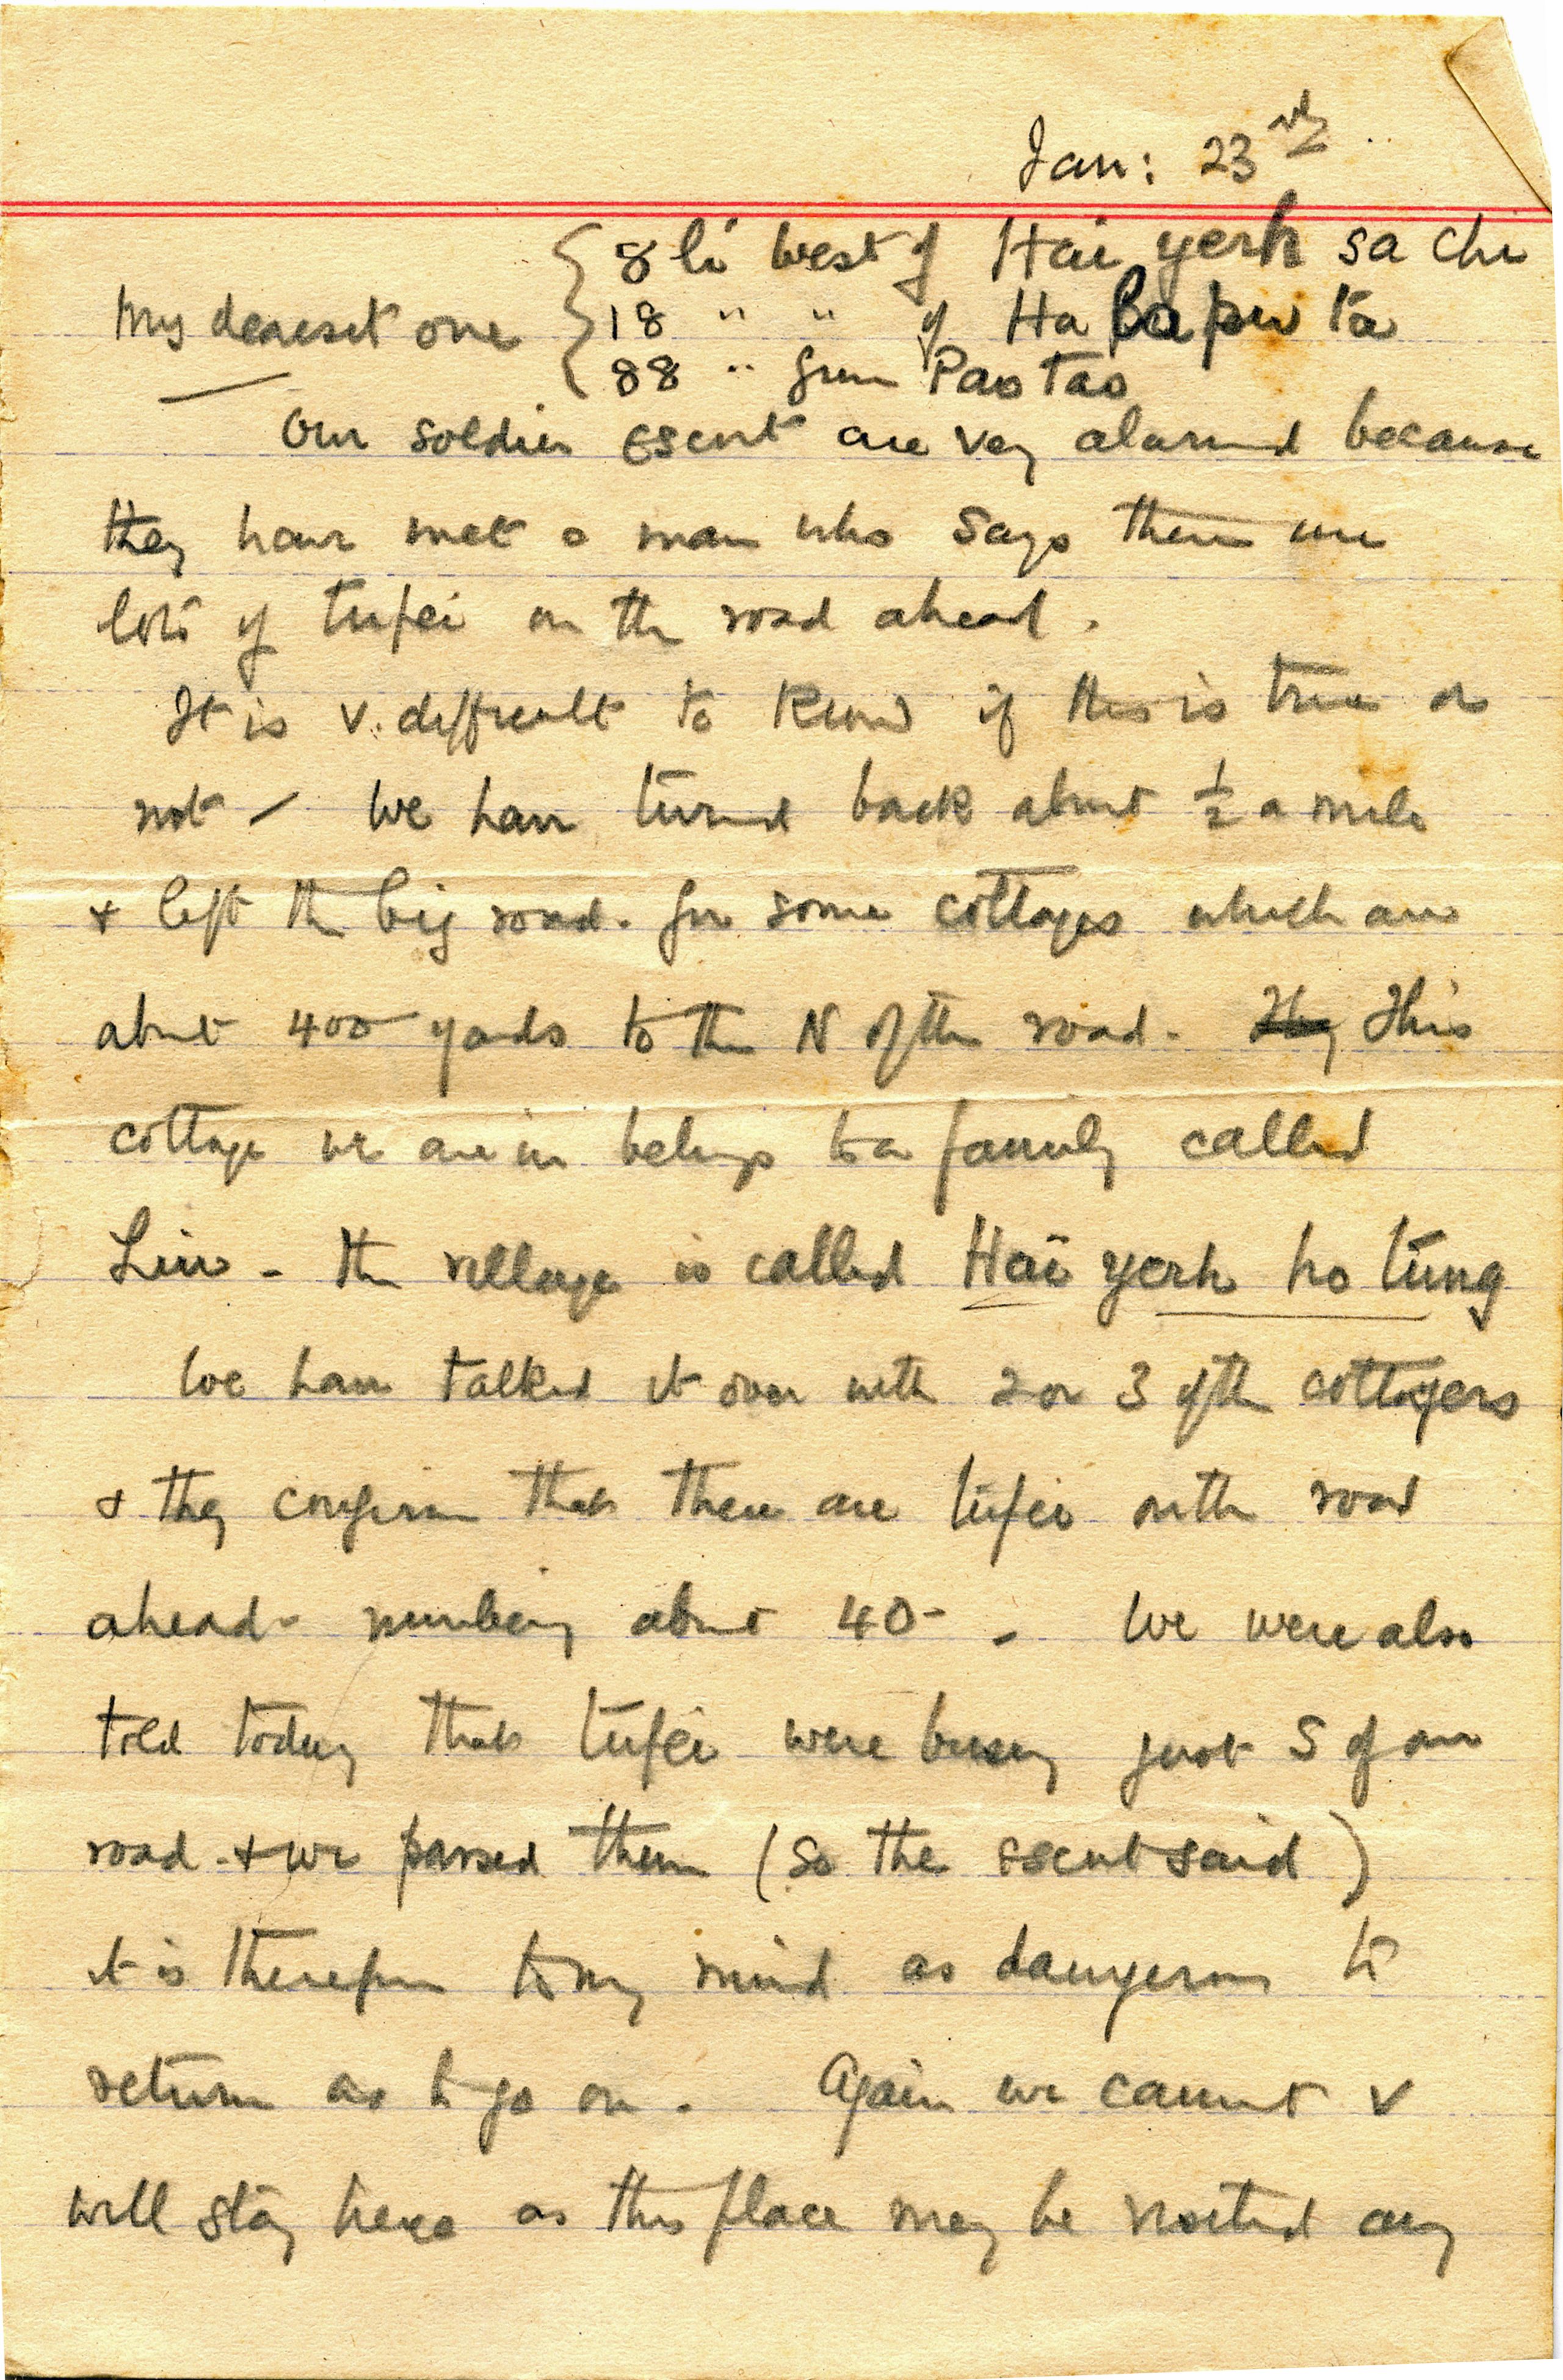 Jan: 23rd
8 li west of Hai yerh sa chi
My dearest one
18 " " of Ha la peu ta
88 " from Pao Tao
Our soldier escort are very alarmed because
they have met a man who says there are
lots of tufei on the road ahead.
It is v. difficult to know if this is true or
not – We have turned back about ½ a mile
& left the big road. for some cottages which are
about 400 yards to the N of the road. They This
cottage we are in belongs to a family called
Liu - the village is called Hai yerh ho tung
We have talked it over with 2 or 3 of the cottagers
& they confirm that there are tufei on the road
ahead - numbering about 40 - - We were also
told today that tufei were busy just S of our
road - & we passed them (so the escort said)
it is therefore to my mind as dangerous to
return as to go on. Again we cannot v
will stay here as this place may be visited any